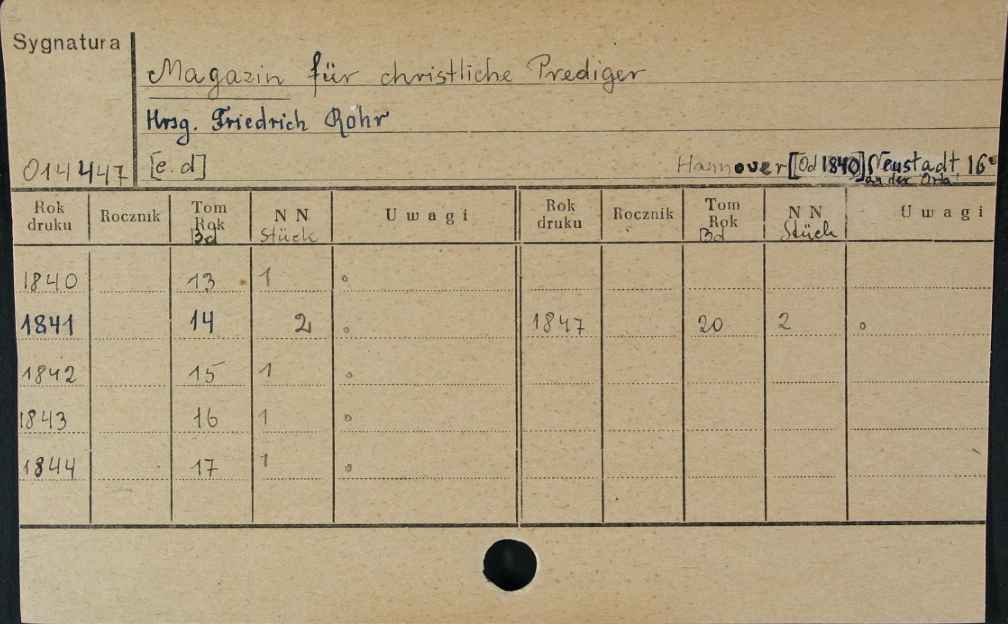 Sygnatura
Magazin für christliche Prediger
Hrsg. Friedrich Röhr
014447 [e.d] Hannover [Od 1840] Neustadt 16°
an der Orla
Rok druku Rocznik Tom Rok Bd NN Stück Uwagi Rok druku Rocznik Tom Rok Bd NN Stück Uwagi
1840 13 1 °
1841 14 2 ° 1847 20 2 °
1842 15 1 °
1843 16 1 °
1844 17 1 °